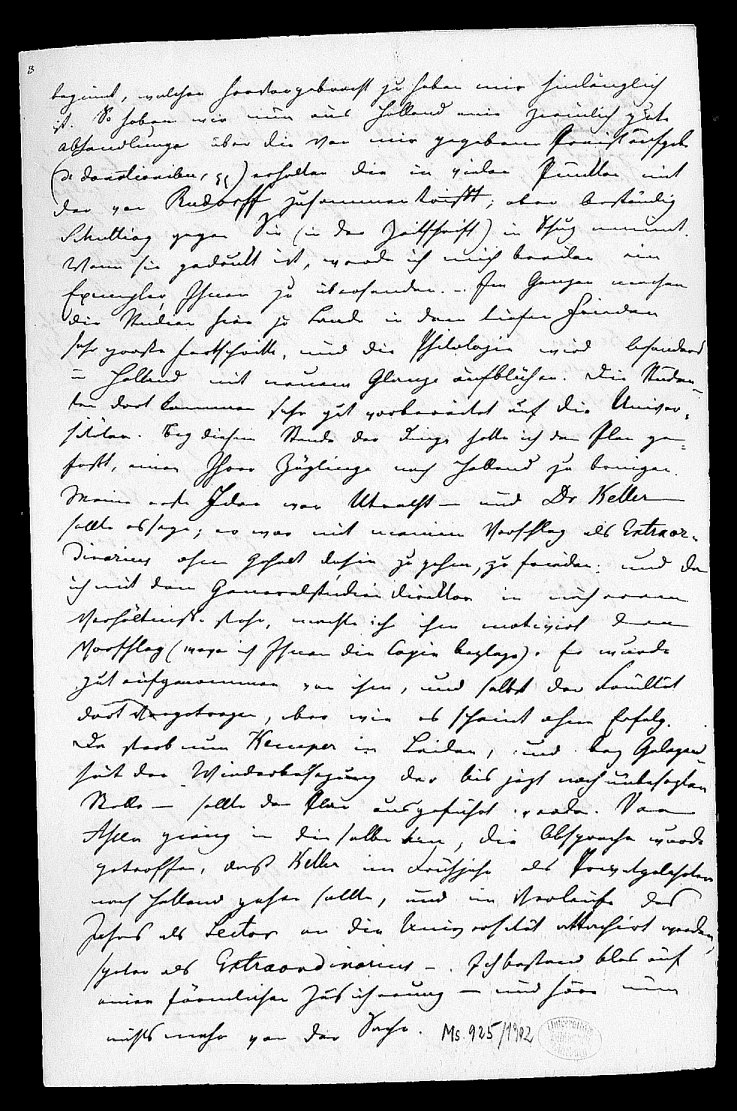 3
beginnt, welchen hervorgebracht zu haben mir hinlänglich
ist. So haben wir nun aus Holland eine ziemlich gute
Abhandlung über die von mir gegebene Preisfrage
(de donationibus, ) erhalten die in vielen Punkten mit
der von Rudorff zusammentrifft, aber beständig
Schulting gegen Sie (in der Zeitschrift) in Schuz nimmt.
Wenn sie gedruckt ist, werde ich mich beeilen ein
Exemplar Ihnen zu übersenden. – Im Ganzen machen
die Studien hier zu Lande in dem tiefen Frieden
sehr große Fortschritte, und die Philologie wird besonders
in Holland mit neuem Glanze aufblühen. Die Studen-
ten dort kommen sehr gut vorbereitet auf die Univer-
sitäten. Bey diesem Stande der Dinge hatte ich den Plan ge-
faßt, einen Ihrer Zöglinge nach Holland zu bringen.
Meine erste Idee war Utrecht – und Dr Keller
sollte es seyn; er war mit meinem Vorschlag als Extraor-
dinarius ohne Gehalt dahin zu gehen, zufrieden: und da
ich mit dem Generalstudiendirektor in näherem
Verhältniß stehe, machte ich ihm motivirt den
Vorschlag (wovon ich Ihnen die Copie beylege). Er wurde
gut aufgenommen von ihm, und selbst der Facultät
dort vorgetragen, aber wie es scheint ohne Erfolg.
Da starb nun Kemper in Leiden, und bey Gelegen-
heit der Wiederbesezung der bis jezt noch unbesezten
Stelle – sollte der Plan ausgeführt werden. Van
Assen ging in dieselbe ein, die Absprache wurde
getroffen, daß Keller im Frühjahr als Privatgelehrter
nach Holland gehen sollte, und im Verlaufe des
Jahres als Lector an die Universität attachirt werden,
später als Extraordinarius –. Ich bestand blos auf
einer förmlichen Zusicherung – und höre nun
nichts mehr von der Sache.
Ms. 925/1902